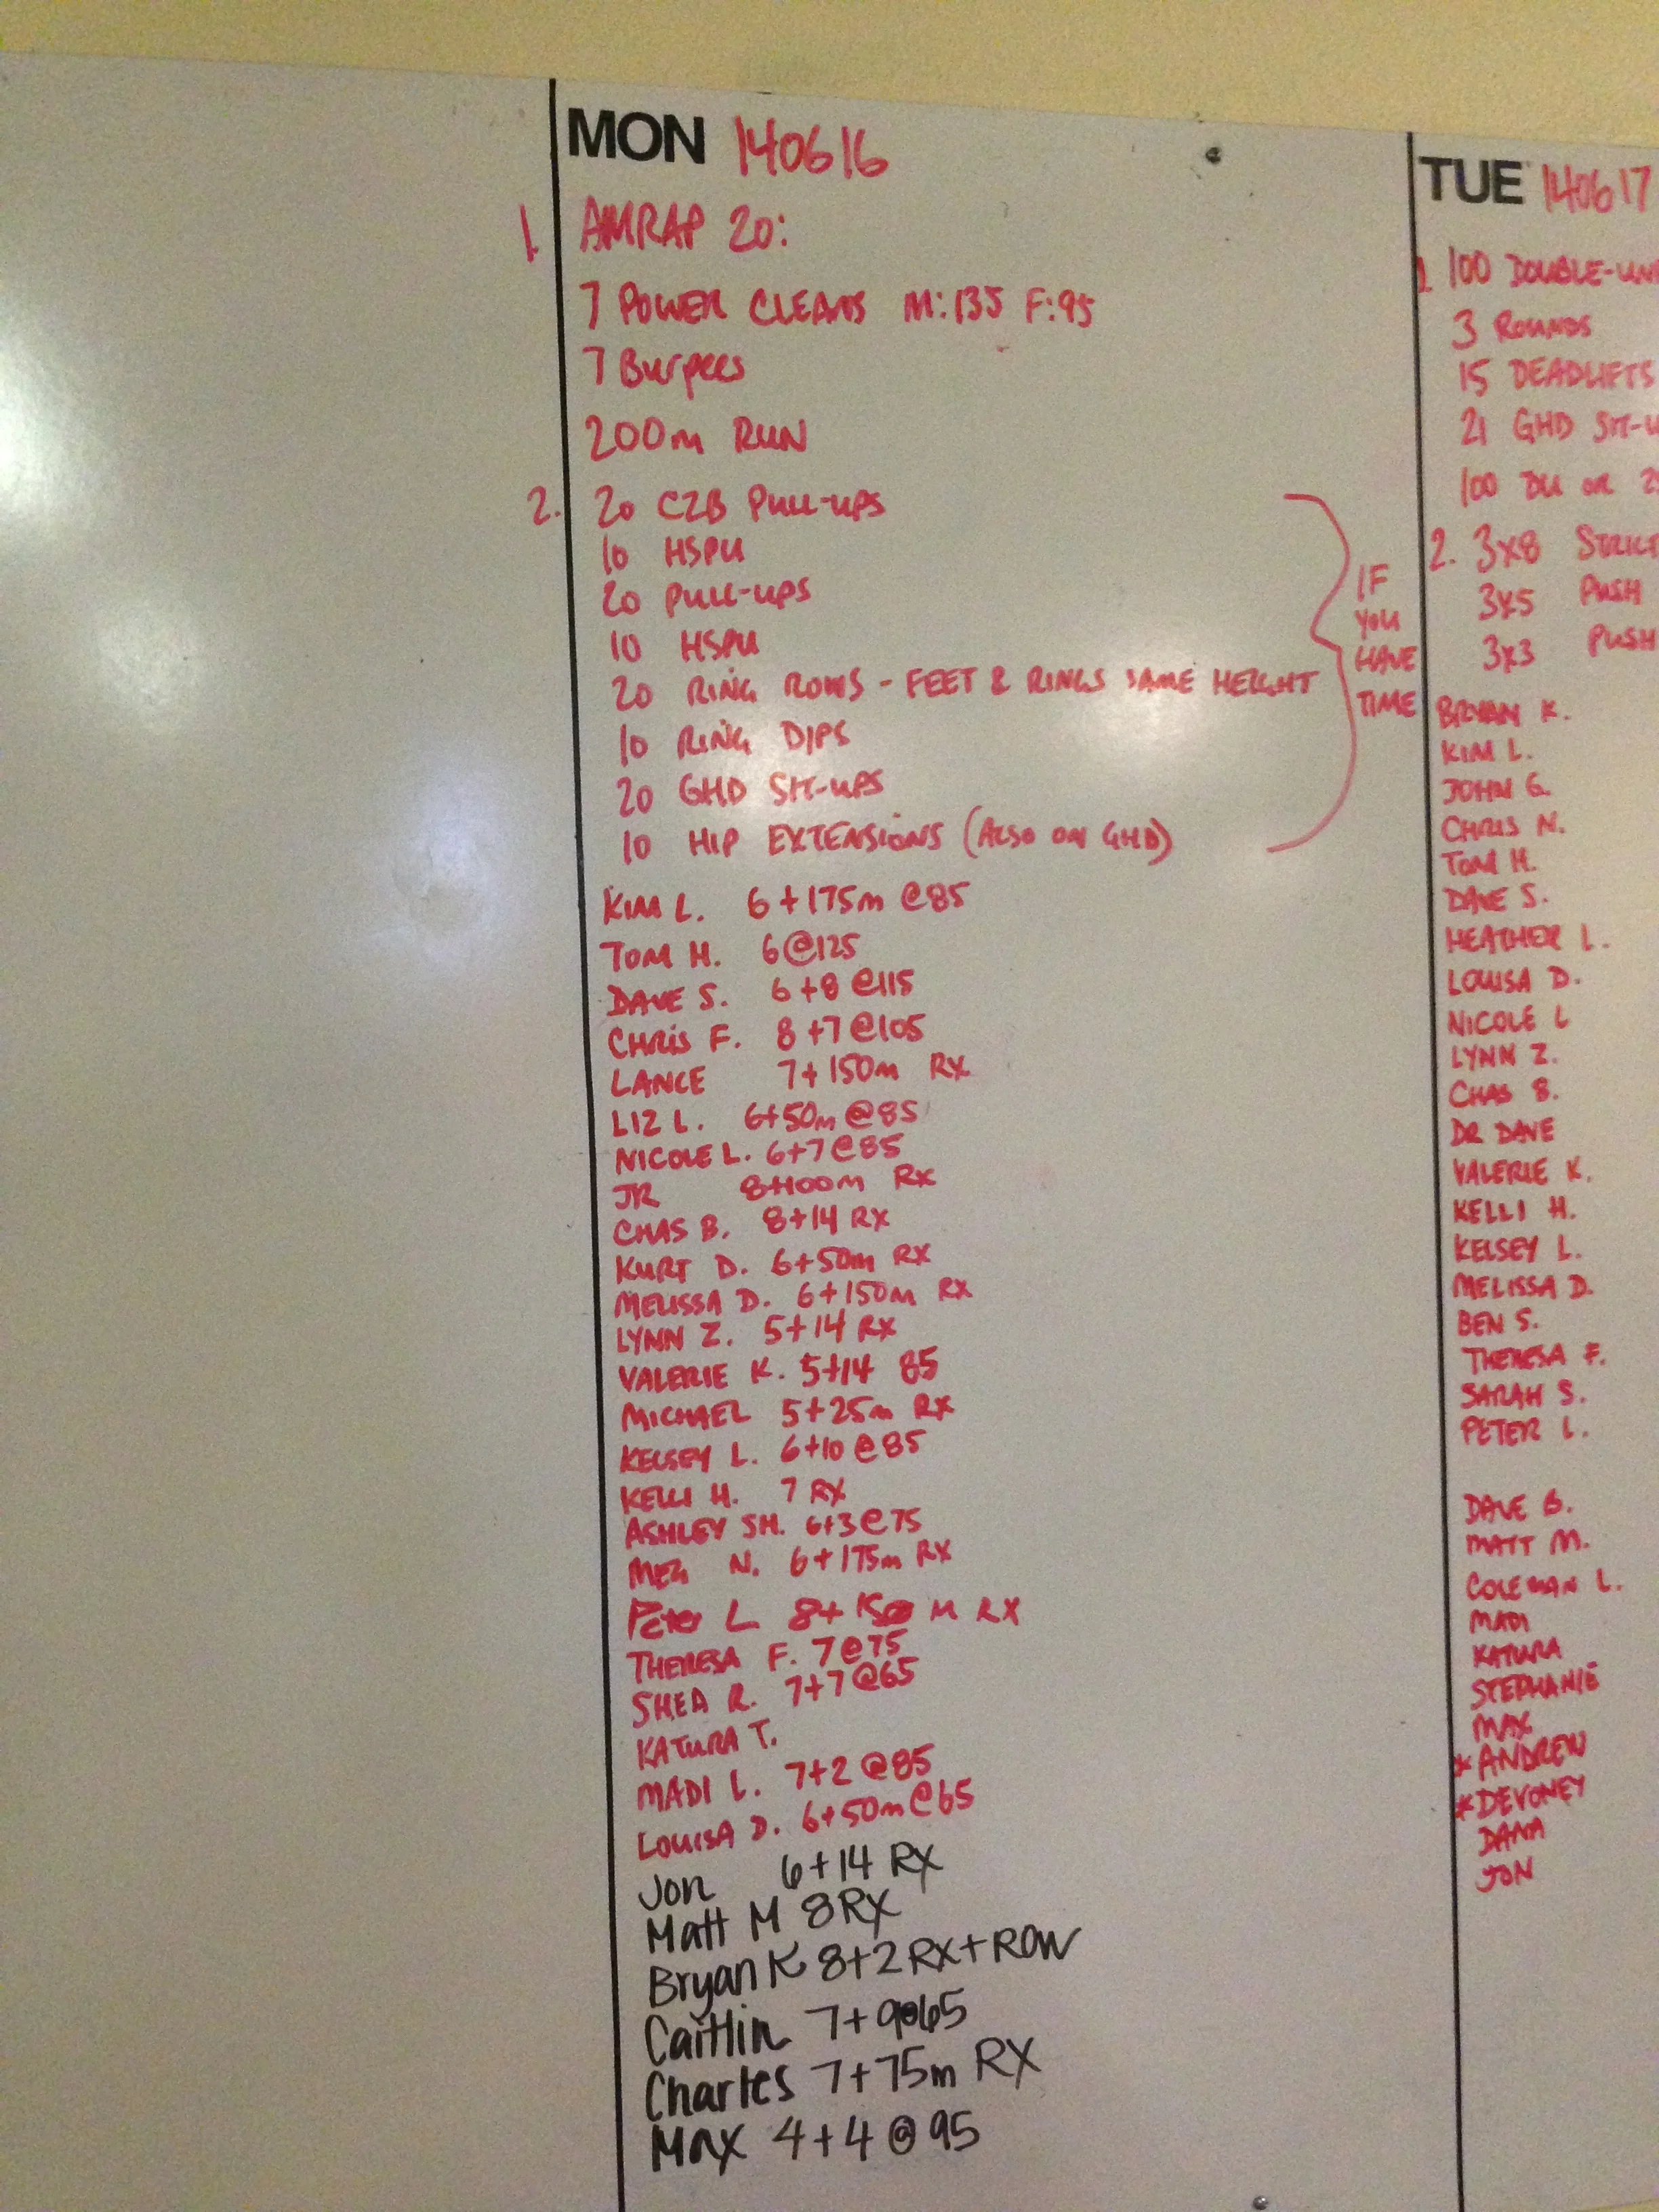 MON 140616
1. AMRAP 20:
7 POWER CLEANS M:135 F:95
7 Burpees
200m RUN
2. 20 C2B PULL-UPS
10 HSPU
20 PULL-UPS
10 HSPU
20 RING ROWS - FEET & RINGS SAME HEIGHT
10 RING DIPS
20 GHD SIT-UPS
10 HIP EXTENSIONS (ALSO ON GHD)
IF
YOU
HAVE
TIME
KIM L. 6+175m @85
TOM H. 6@125
DAVE S. 6+8 @115
CHRIS F. 8+7@105
LANCE 7+150m RX
LIZ L. 6+50m @85
NICOLE L. 6+7@85
JR 8+100m RX
CHAS B. 8+14 RX
KURT D. 6+50m RX
MELISSA D. 6+150m RX
LYNN Z. 5+14 RX
VALERIE K. 5+14 85
MICHAEL 5+25m RX
KELSEY L. 6+10@85
KELLI H. 7 RX
ASHLEY SH. 6+3@75
MEG N. 6+175m RX
Peter L 8+ M RX
THERESA F. 7@75
SHEA R. 7+7@65
KATURA T.
MADI L. 7+2@85
LOUISA D. 6+50m@65
Jon 6+14 RX
Matt M 8RX
Bryan K 8+2RX+ROW
Caitlin 7+9@65
Charles 7+75m RX
Max 4+4@95
TUE 140617
1. 100 DOUBLE-UN
3 ROUNDS
15 DEADLIFTS
21 GHD SIT-U
100 DU OR 2
2. 3x8 STRICT
3x5 PUSH
3x3 PUSH
BRYAN K.
KIM L.
JOHN G.
CHRIS N.
TOM H.
DAVE S.
HEATHER L.
LOUISA D.
NICOLE L
LYNN Z.
CHAS B.
DR DAVE
VALERIE K.
KELLI H.
KELSEY L.
MELISSA D.
BEN S.
THERESA F.
SARAH S.
PETER L.
DAVE B.
MATT M.
COLEMAN L.
MADI
KATURA
STEPHANIE
MAX
*ANDREW
*DEVONEY
DANA
JON